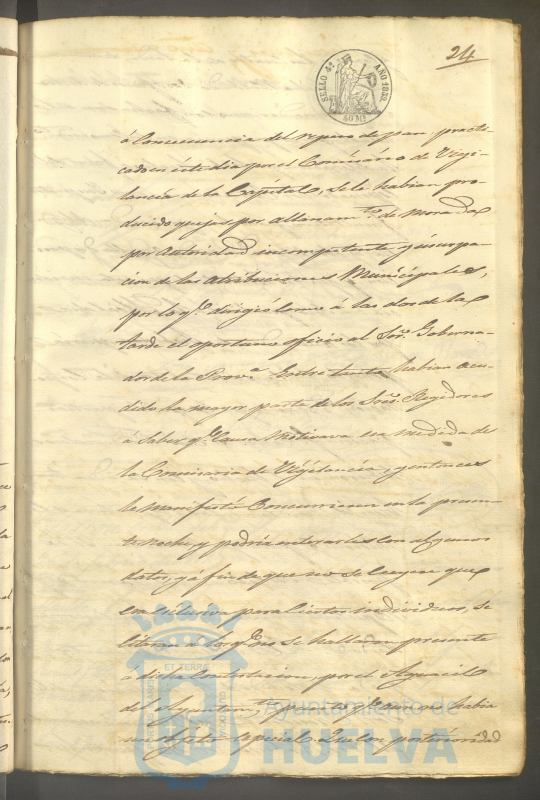 24
SELLO 4º AÑO 1859
40 Ms
á Concecuencia del repeso de pan, practi-
cado en este dia por el Comisario de Viji-
lancia de la Capital, se le habian pro-
ducido quejas por allanam.to de morada
por Autoridad incompetente y usurpa-
cion de las atribuciones Municipales,
por lo q.e dirigió como á las dos de la
tarde el oportuno oficio al Sor. Goberna-
dor de la Prov.a Entre tanto habian acu-
dido la mayor parte de los Sres. Regidores
á saber q.e Causa motivava esa medida de
la Comisaria de Vigilancia, y entonces
le manifestó Concurriesen en la presen-
te noche y podria enterarles con algunos
datos, y á fin de que no se creyese que
era para Ciertos individuos, se
citaran á los q.e no se hallaron presente
á dicha Contestacion, por el Alguacil
del Ayuntam.to, pues q.e aun no habia
un objeto especial. Que con posterioridad
ET TERRÆ
Ayuntamiento de
HUELVA